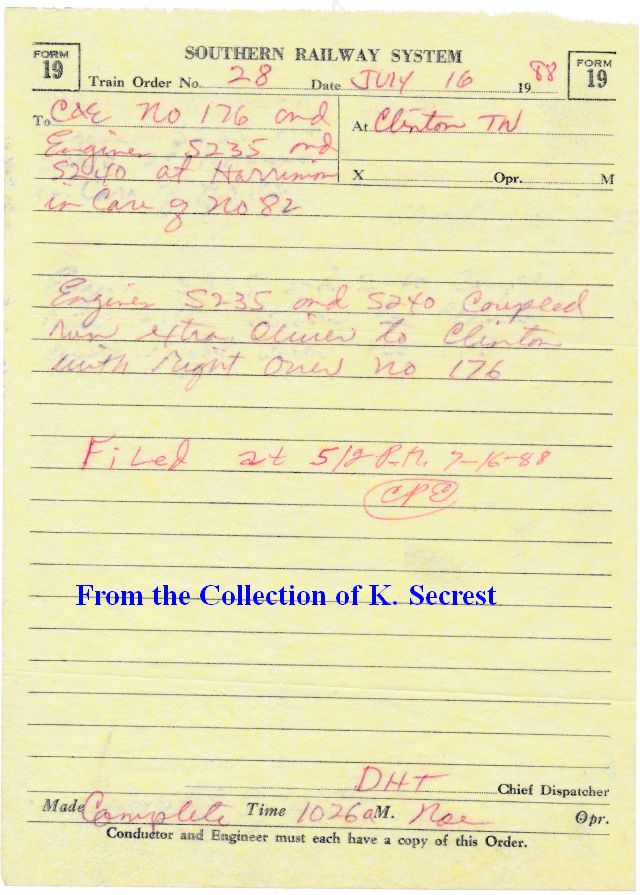 SOUTHERN RAILWAY SYSTEM
FORM 19
FORM 19
Train Order No. 28 Date JULY 16 1988
To C&E No 176 and At Clinton TN
Engines 5235 and
5240 at Harriman X Opr. M
in Care of No 82
Engines 5235 and 5240 Coupled
run extra Oliver to Clinton
with right over no 176
Filed at 512 P.M. 7-16-88
CPE
From the Collection of K. Secrest
DHT Chief Dispatcher
Made Complete Time 1026 aM. Noe Opr.
Conductor and Engineer must each have a copy of this Order.